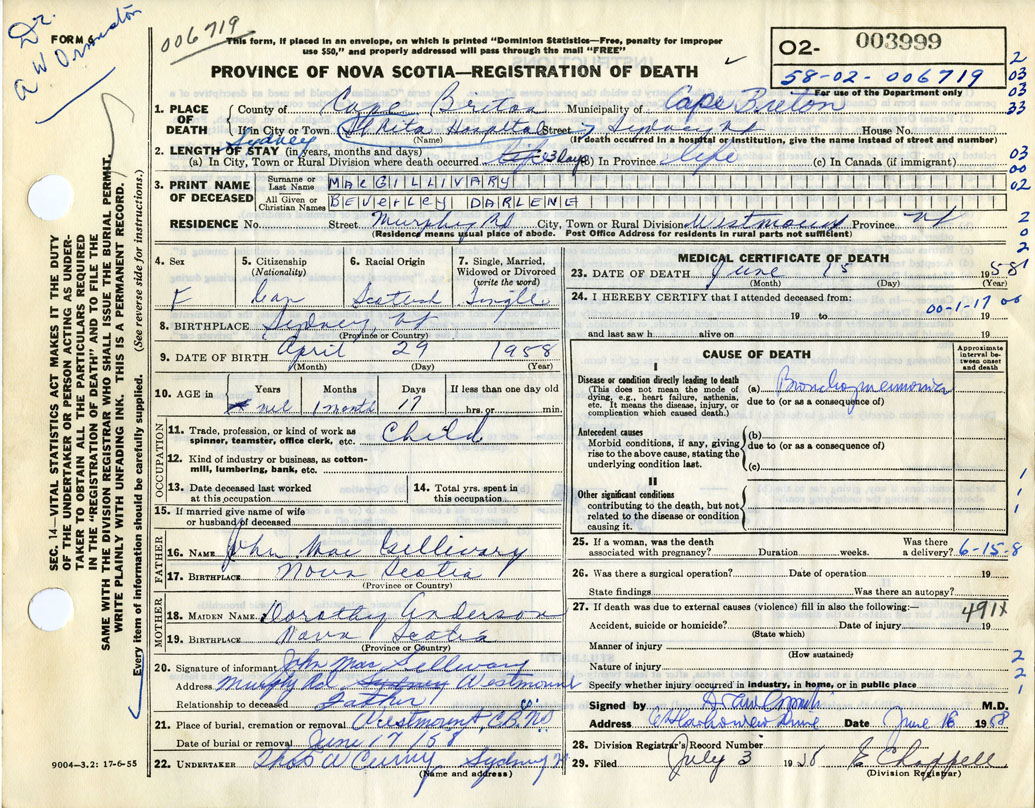 Dr.
A W Ormeston
FORM 6
006719
This form, if placed in an envelope, on which is printed "Dominion Statistics—Free, penalty for improper
use $50," and properly addressed will pass through the mail "FREE"
PROVINCE OF NOVA SCOTIA—REGISTRATION OF DEATH
02- 003999
58-02-006719
For use of the Department only
2
03
03
33
1. PLACE OF DEATH
County of Cape Briton Municipality of Cape Breton
If in City or Town St Rita Hospital Street Sydney NS House No.
(Name) (If death occurred in a hospital or institution, give the name instead of street and number)
Sydney
2. LENGTH OF STAY (in years, months and days)
(a) In City, Town or Rural Division where death occurred 3 Days (B) In Province life (c) In Canada (if immigrant)
03
00
02
3. PRINT NAME OF DECEASED
Surname or Last Name MACGILLIVARY
All Given or Christian Names BEVERLEY DARLENE
RESIDENCE No. Street Murphy Rd City, Town or Rural Division Westmount Province NS
(Residence means usual place of abode. Post Office Address for residents in rural parts not sufficient)
2
0
2
4. Sex
F
5. Citizenship
(Nationality)
Can
6. Racial Origin
Scotish
7. Single, Married,
Widowed or Divorced
(write the word)
Single
8. BIRTHPLACE Sydney, NS
(Province or Country)
9. DATE OF BIRTH April 29 1958
(Month) (Day) (Year)
10. AGE in Years Months Days If less than one day old
nil 1 month 17 hrs. or min.
OCCUPATION
11. Trade, profession, or kind of work as
spinner, teamster, office clerk, etc. Child
12. Kind of industry or business, as cotton-
mill, lumbering, bank, etc.
13. Date deceased last worked
at this occupation
14. Total yrs. spent in
this occupation
15. If married give name of wife
or husband of deceased
FATHER
16. NAME John Mac Gillivary
17. BIRTHPLACE Nova Scotia
(Province or Country)
MOTHER
18. MAIDEN NAME Dorothy Anderson
19. BIRTHPLACE Nova Scotia
(Province or Country)
20. Signature of informant John Mac Gillivary
Address Murphy Rd Sydney Westmount
Relationship to deceased Father
21. Place of burial, cremation or removal Westmount, C.B. NS
Co.
Date of burial or removal June 17/58
22. UNDERTAKER Thos W Curry Sydney NS
(Name and address)
MEDICAL CERTIFICATE OF DEATH
23. DATE OF DEATH June 15 1958
(Month) (Day) (Year)
24. I HEREBY CERTIFY that I attended deceased from:
00-1-17 00
19 to 19
and last saw h alive on 19
CAUSE OF DEATH
Approximate
interval be-
tween onset
and death
I
Disease or condition directly leading to death
(This does not mean the mode of
dying, e.g., heart failure, asthenia,
etc. It means the disease, injury, or
complication which caused death.)
(a) Bronchopneumonia
due to (or as a consequence of)
Antecedent causes
Morbid conditions, if any, giving
rise to the above cause, stating the
underlying condition last.
(b)
due to (or as a consequence of)
(c)
II
Other significant conditions
contributing to the death, but not
related to the disease or condition
causing it.
1
1
1
25. If a woman, was the death
associated with pregnancy? Duration weeks. Was there
a delivery? 6-15-8
26. Was there a surgical operation? Date of operation 19
State findings Was there an autopsy?
27. If death was due to external causes (violence) fill in also the following:—
491X
Accident, suicide or homicide? Date of injury 19
(State which)
Manner of injury
(How sustained)
Nature of injury
Specify whether injury occurred in industry, in home, or in public place
2
2
1
Signed by M.D.
Address Date June 16 1958
28. Division Registrar's Record Number
29. Filed July 3 1958 E Chappell
(Division Registrar)
SEC. 14—VITAL STATISTICS ACT MAKES IT THE DUTY
OF THE UNDERTAKER OR PERSON ACTING AS UNDER-
TAKER TO OBTAIN ALL THE PARTICULARS REQUIRED
IN THE "REGISTRATION OF DEATH" AND TO FILE THE
SAME WITH THE DIVISION REGISTRAR WHO SHALL ISSUE THE BURIAL PERMIT.
WRITE PLAINLY WITH UNFADING INK. THIS IS A PERMANENT RECORD.
Every item of information should be carefully supplied. (See reverse side for instructions.)
9004—3.2: 17-6-55